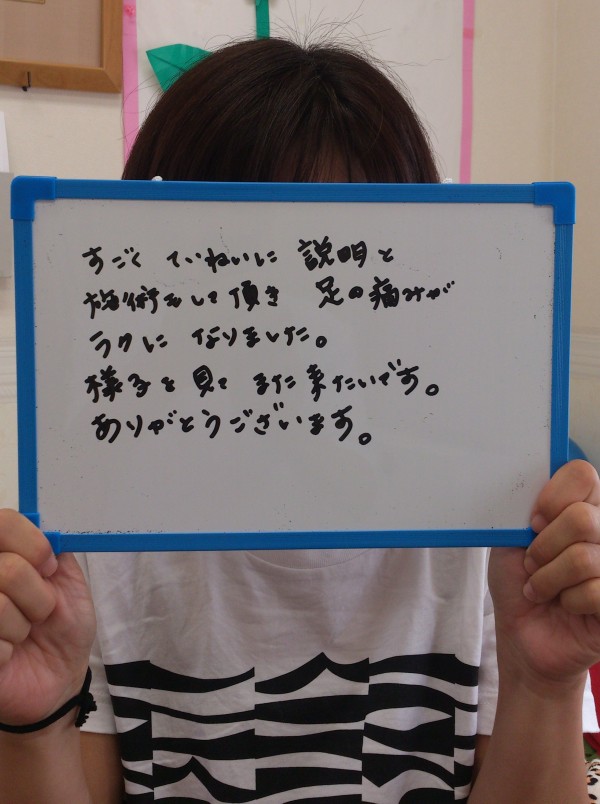 すごく ていねいに 説明と
施術をして頂き 足の痛みが
ラクに なりました。
様子を見て また来たいです。
ありがとうございます。